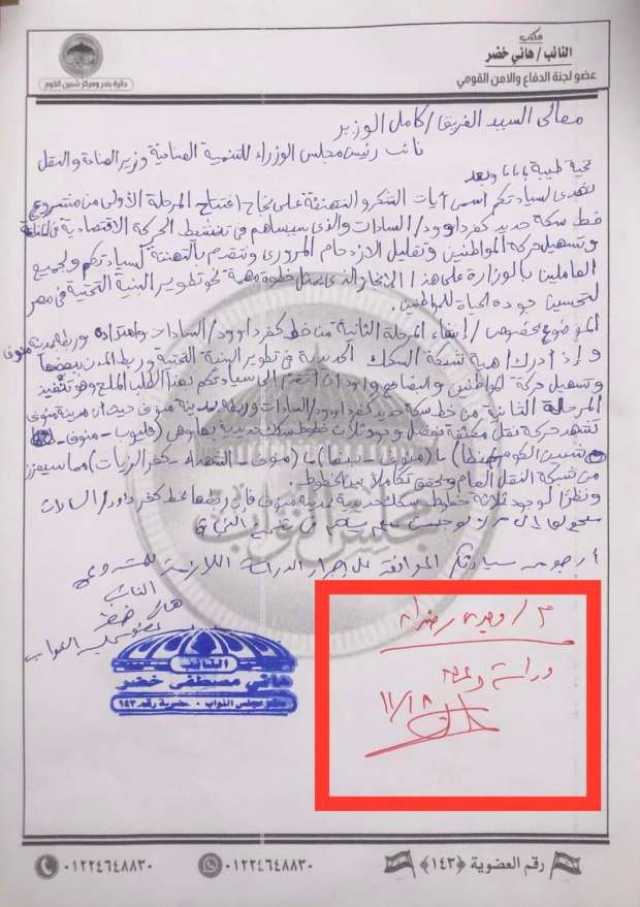 مكتب
النائب / هاني خضر
عضو لجنة الدفاع والامن القومي
دائرة بندر ومركز شبين الكوم
معالى السيد الفريق / كامل الوزير
نائب رئيس مجلس الوزراء للتنمية الصناعية وزير الصناعة والنقل
تحية طيبة وبعد
أسمى آيات الشكر والتهنئة على نجاح افتتاح المرحلة الأولى من مشروع
خط سكة حديد كفر داوود / السادات والذى سيساهم فى تنشيط الحركة الاقتصادية
وتسهيل حركة المواطنين وتقليل الازدحام المرورى ونتقدم بالتهنئة لسيادتكم ولجميع
العاملين بالوزارة على هذا الانجاز الذى يمثل خطوة مهمة نحو تطوير البنية التحتية فى مصر
لتحسين جوده الحياة للمواطنين .
الموضوع بخصوص / إنشاء المرحلة الثانية من خط كفر داوود / السادات وامتداده وربطه بمدينة منوف
أهمية شبكة السكك الحديدية فى تطوير البنية التحتية وربط المدن ببعضها
وتسهيل حركة المواطنين والبضائع أن أتقدم الى سيادتكم بهذا الطلب الملح وهو تنفيذ
المرحلة الثانية من خط سكة حديد كفر داوود / السادات وربطه بمدينة منوف حيث أن مدينة منوف
تشهد حركة نقل مكثفة بفضل وجود ثلاث خطوط سكك حديدية بها وهى (قليوب - منوف -
شبين الكوم - طنطا) ، (منوف - بنها) ، (منوف - الشهداء - كفر الزيات) مما سيعزز
من شبكة النقل العام ويحقق تكاملا بين الخطوط .
ونظرا لوجود ثلاثة خطوط سكك حديدية بمدينة منوف فإن ربطها بخط كفر داود / السادات
أرجو من سيادتكم الموافقة على إجراء الدراسة اللازمة للمشروع
النائب
هانى خضر
عضو مجلس النواب
مجلس النواب
النائب
هاني مصطفى خضر
عضو مجلس النواب - عضوية رقم ١٤٣
م / وجدى رضوان
دراسة وعرض
١١/١٨
٠١٢٢٤٦٤٨٨٣٠
٠١٢٢٤٦٤٨٨٣٠
رقم العضوية ﴿١٤٣﴾